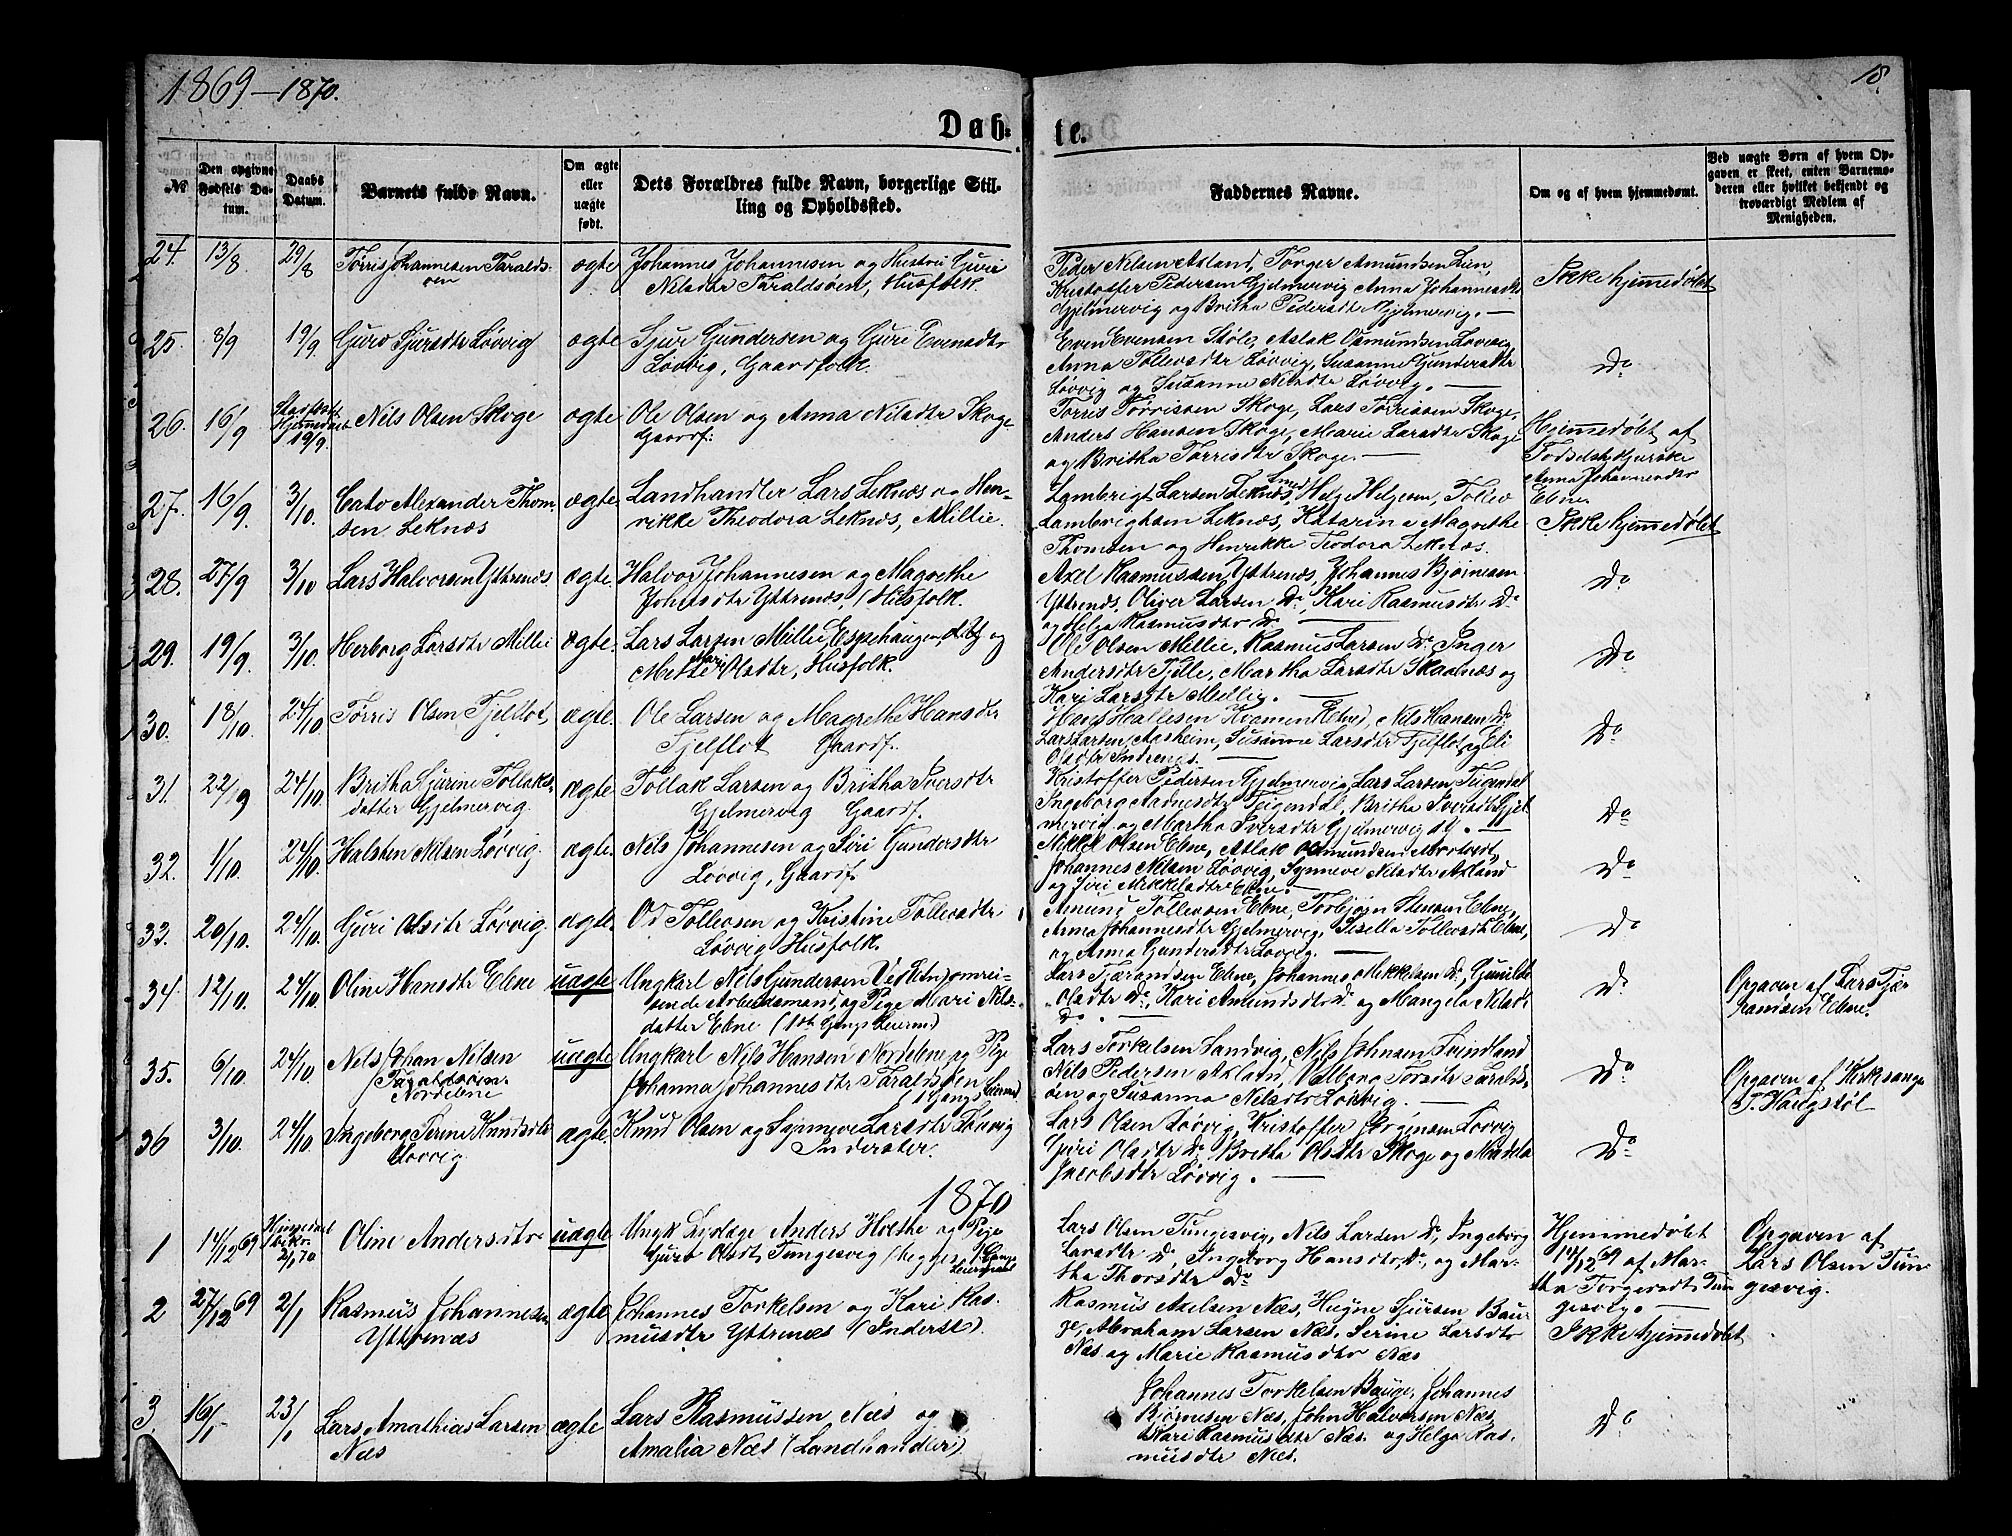 1869–1870.
18.
Døb-
te.
№
Den opgivne Fødsels Datum.
Daabs Datum.
Barnets fulde Navn.
Om ægte eller uægte født.
Dets Forældres fulde Navn, borgerlige Stilling og Opholdssted.
Faddernes Navne.
Om og af hvem hjemmedøbt.
Ved uægte Børn af hvem Opgaven er skeet, enten Barnemoderen eller hvilket bekjendt og troværdigt Medlem af Menigheden.
24. 13/8 29/8 Tørris Johannesen Taralds-
øen
ægte Johannes Johannesen og Hustru Guri
Nilsdtr Taraldsøen, Husfolk.
Peder Nilsen Axland, Torger Amundsen Lien,
Kristoffer Pedersen Gjelmervig Anna Johannesdtr
Gjelmervig og Britha Pedersdtr Gjelmervig. —
Ikke hjemmedøbt
25. 8/9 19/9 Guro Sjursdtr Løvvig ægte Sjur Gundersen og Guri Evensdtr
Løvvig, Gaardfolk.
Even Evensen Støle, Aslak Osmundsen Løvvig,
Anna Tollevsdtr Løvvig, Susanne Gundersdtr
Løvvig og Susanne Nilsdtr Løvvig. —
Do
26. 16/9 Stadfæstet Hjemmedaab 19/9. Nils Olsen Skoge ægte Ole Olsen og Anna Nilsdtr Skoge
Gaardf:
Torris Tørrissen Skoge, Lars Tørrissen Skoge,
Anders Hansen Skoge, Marie Larsdtr Skoge
og Britha Tørrisdtr Skoge. —
Hjemmedøbt af
Anna Johannesdtr
Ebne.
27. 16/9. 3/10. Cato Alexander Thom-
sen Leknæs
ægte Landhandler Lars Leknæs og Hen-
rikke Theodora Leknæs, Millie.
Lambrigt Larsen Leknæs, Helge Helgesen, Tollev
Lambrigtsen Leknæs, Katarina Magrethe
Thomsen og Henrikke Teodora Leknæs.
Ikke hjemmedøbt
28. 27/9 3/10 Lars Halvorsen Yttrenæs ægte. Halvor Johannesen og Magrethe
Johnsdtr Yttrenæs, Husfolk.
Axel Rasmussen Yttrenæs, Johannes Bjørnesen
Yttrenæs, Oliver Larsen Do, Kari Rasmusdtr Do
og Helga Rasmusdtr Do —
Do
29. 19/9. 3/10. Herborg Larsdtr Millie ægte. Lars Larsen Millie, Espehaugen, og
Mette Mari Olsdtr, Husfolk.
Ole Olsen Millie, Rasmus Larsen Do, Inger
Andersdtr Fjelle, Martha Larsdtr Skaanæs og
Kari Larsdtr Millie. —
Do
30. 18/10. 24/10. Tørris Olsen Fjelflot, ægte. Ole Larsen og Magrethe Hansdtr
Fjelflot Gaardf.
Nils Hansen Do
Lars Larsen Aasheim, Susanne Larsdtr Fjelflot og Eli
Olsdtr Indrenes. —
Do
31. 22/9 24/10. Britha Gjurine Tollaks-
datter Gjelmervig.
ægte Tollak Larsen og Britha Iversdtr
Gjelmervig Gaardf.
Kristoffer Pedersen Gjelmervig, Lars Larsen Teigendal
Ingeborg Aadnesdtr Teigendal, Britha Iversdtr Gjel
mervig og Martha Iversdtr Gjelmervig. —
Do
32. 1/10. 24/10. Halsten Nilsen Løvvig. ægte. Nils Johannesen og Siri Gundersdtr
Løvvig, Gaardf.
Mikkel Olsen Ebne, Aslak Osmundsen
Johannes Nilsen Løvvig, Synneve Nilsdtr Axland
og Siri Mikkelsdtr Ebne. —
Do
33. 20/10. 24/10. Guri Olsdtr Løvvig. ægte. Od Tollevsen og Kristine Tollevsdtr
Løvvig Husfolk.
Amund Tollevsen Ebne, Torbjørn Stensen Ebne,
Anna Johannesdtr Gjelmervig, Sisella Tollevsdtr Ebne,
og Anna Gundersdtr Løvvig. —
Do
34. 12/10. 24/10. Oline Hansdtr Ebne uægte Ungkarl Nils Gundersen omrei-
sende Arbeidsmand, og Pige Mari Nils-
datter Ebne (1ste Gangs Leierm)
Lars Tjerandsen Ebne, Johannes Mikkelsen Do, Gunilde
Olsdtr Do, Kari Amundsdtr Do og Mangela Nilsdtr
Do. —
Do
Opgaven af Lars Tje-
randsen Ebne.
35. 6/10. 24/10. Nels Johan Nilsen
Taraldsøen
Nordebne
uægte Ungkarl Nils Hansen Nordebne og Pige
Johanna Johannesdtr Taraldsøen
(1 Gangs Leierm)
Lars Torkelsen Sandvig, Nils Johnsen Svindland
Nils Pedersen Axland, Valborg Torsdtr Taralds-
øen og Susanna Nilsdtr Løvvig. —
Do
Opgaven af Kirkesanger
T. Haugstøl
36 3/10. 24/10. Ingeborg Serine Knudsdtr
Løvvig
ægte Knud Olsen og Synneve Larsdtr Løvvig
Inderster.
Lars Olsen Løvvig, Kristoffer Jørgensen Løvvig
Guri Olsdtr Do, Britha Olsdtr Skoge og Madela
Jacobsdtr Løvvig. —
Do
1870
1 14/12 69 Hjemmedaab bekr. 2/1 70 Oline Andersdtr uægte Ungk Anders Holthe og Pige
Guro Olsdtr Tungesvig (begges 1 Gangs
Leiermaal
Lars Olsen Tungesvig, Nils Larsen Do, Ingeborg
Larsdtr Do, Ingeborg Hansdtr Do, og Mar-
tha Thorsdtr Do
Hjemmedøbt
14/12 69 af Mar-
tha Torgersdtr Tun
gesvig. —
Opgaven af
Lars Olsen Tun
gesvig.
2 27/12 69 2/1 Rasmus Johannesen
Yttrenæs
ægte Johannes Torkelsen og Kari Ras-
musdtr Yttrenæs (Inderst).
Rasmus Axelsen Næs, Hugne Sjursen Bau-
ge, Abraham Larsen Næs, Serine Larsdtr
Næs og Marie Rasmusdtr Næs
Ikke hjemmedøbt
3. 16/1 23/1 Lars Amathias Larsen
Næs
ægte Lars Rasmussen Næs og
Amalia Næs (Landhandler)
Johannes Torkelsen Bauge, Johannes
Bjørnesen Næs, John Halvorsen Næs,
Kari Rasmusdtr Næs. og Helga Ras-
musdtr Næs.
Do